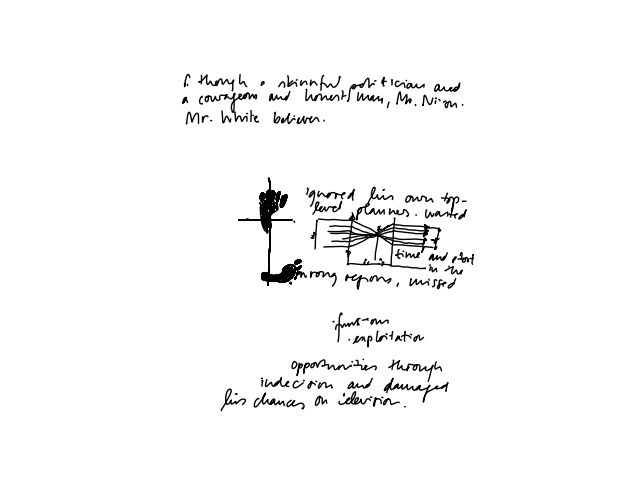 though a skinnful politician and
a courageous and honest man, Mr. Nixon.
Mr. White believer.
ignored his own top-
level planners. wasted
time and effort
in the
wrong regions, missed
exploitation
opportunities through
indecision and damaged
his chances on television.